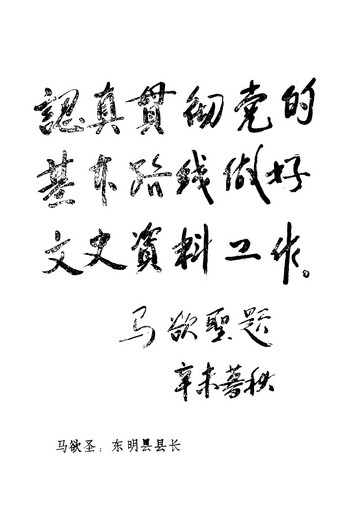 認真貫彻党的
基本路线做好
文史資料工作。
马欲聖题
辛未暮秋
马欲圣：东明县县长